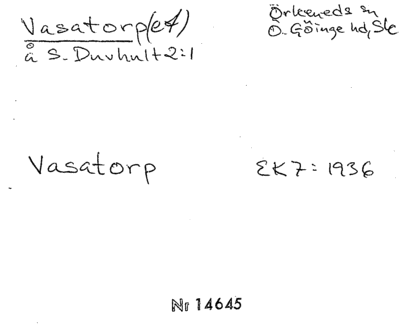 Vasatorp(et)
å S. Duvhult 2:1
Örkeneds sn
Ö. Göinge hd, Sk
Vasatorp
EK 7: 1936
Nr 14645